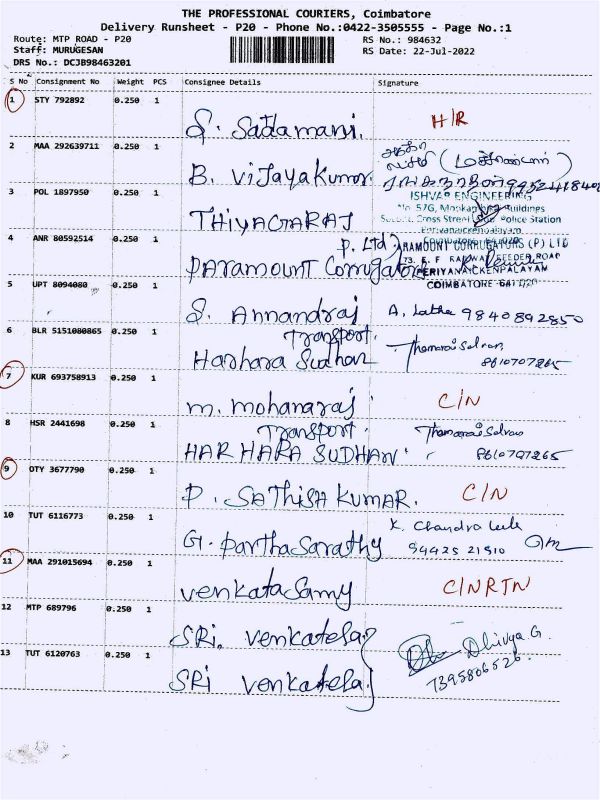 THE PROFESSIONAL COURIERS, Coimbatore
Delivery Runsheet - P20 - Phone No.:0422-3505555 - Page No.:1
Route: MTP ROAD - P20
RS No.: 984632
Staff: MURUGESAN
RS Date: 22-Jul-2022
DRS No.: DCJB98463201
S No Consignment No Weight PCS Consignee Details Signature
1 STY 792892 0.250 1
S. Sadamani. H/R
2 MAA 292639711 0.250 1
B. Vijayakumar.
3 POL 1897950 0.250 1
ISHVAR ENGINEERING
THIYAGARAJ
4 ANR 80592514 0.250 1
P. Ltd
PARAMOUNT CORRUGATORS (P) LTD
Paramount Corrugators
PERIYANAICKENPALAYAM
COIMBATORE-641 020
5 UPT 8094080 0.250 1
S. Annandraj A. Latha 9840892850
6 BLR 5151080865 0.250 1
Transport.
Harhara Sudhan Thamarai Selvan
8610707265
7 KUR 693758913 0.250 1
m. mohanaraj C/N
8 HSR 2441698 0.250 1
Transport. Thamarai Selvan
HARHARA SUDHAN 8610707265
9 OTY 3677790 0.250 1
P. SATHISH KUMAR. C/N
10 TUT 6116773 0.250 1
K. Chandra
G. Parthasarathy 94425 21510
11 MAA 291015694 0.250 1
Venkatasamy C/NRTN
12 MTP 689796 0.250 1
SRi. Venkatesa
13 TUT 6120763 0.250 1
Dhivya G.
SRi Venkatesa 7395806526.